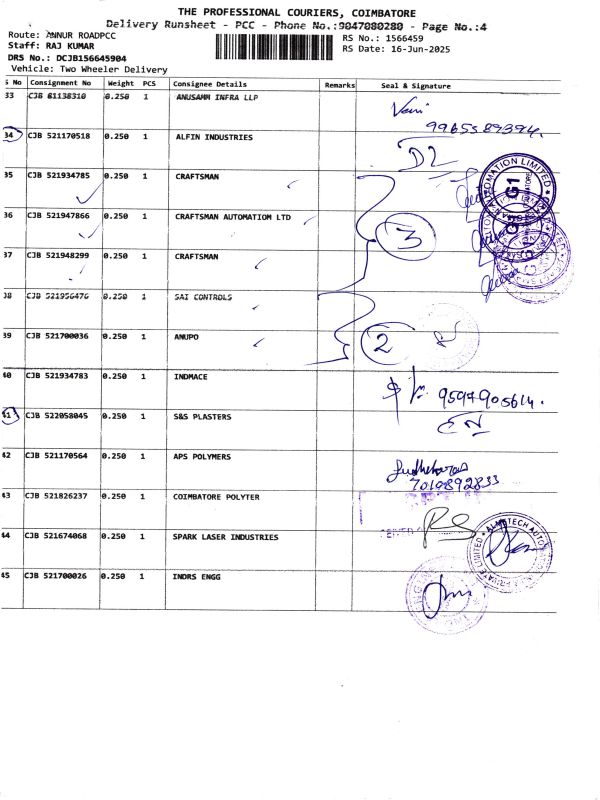 THE PROFESSIONAL COURIERS, COIMBATORE
Delivery Runsheet - PCC - Phone No.:9047080280 - Page No.:4
Route: ANNUR ROADPCC
RS No.: 1566459
Staff: RAJ KUMAR
RS Date: 16-Jun-2025
DRS No.: DCJB156645904
Vehicle: Two Wheeler Delivery
S No Consignment No Weight PCS Consignee Details Remarks Seal & Signature
33 CJB 81138310 0.250 1 ANUSAMM INFRA LLP
9965589394.
34 CJB 521170518 0.250 1 ALFIN INDUSTRIES
DL
35 CJB 521934785 0.250 1 CRAFTSMAN
36 CJB 521947866 0.250 1 CRAFTSMAN AUTOMATION LTD
3
37 CJB 521948299 0.250 1 CRAFTSMAN
38 CJB 521956476 0.250 1 SAI CONTROLS
39 CJB 521700036 0.250 1 ANUPO
2
40 CJB 521934783 0.250 1 INDMACE
9597905614.
41 CJB 522058045 0.250 1 S&S PLASTERS
42 CJB 521170564 0.250 1 APS POLYMERS
7010892833
43 CJB 521826237 0.250 1 COIMBATORE POLYTER
44 CJB 521674068 0.250 1 SPARK LASER INDUSTRIES
45 CJB 521700026 0.250 1 INDRS ENGG